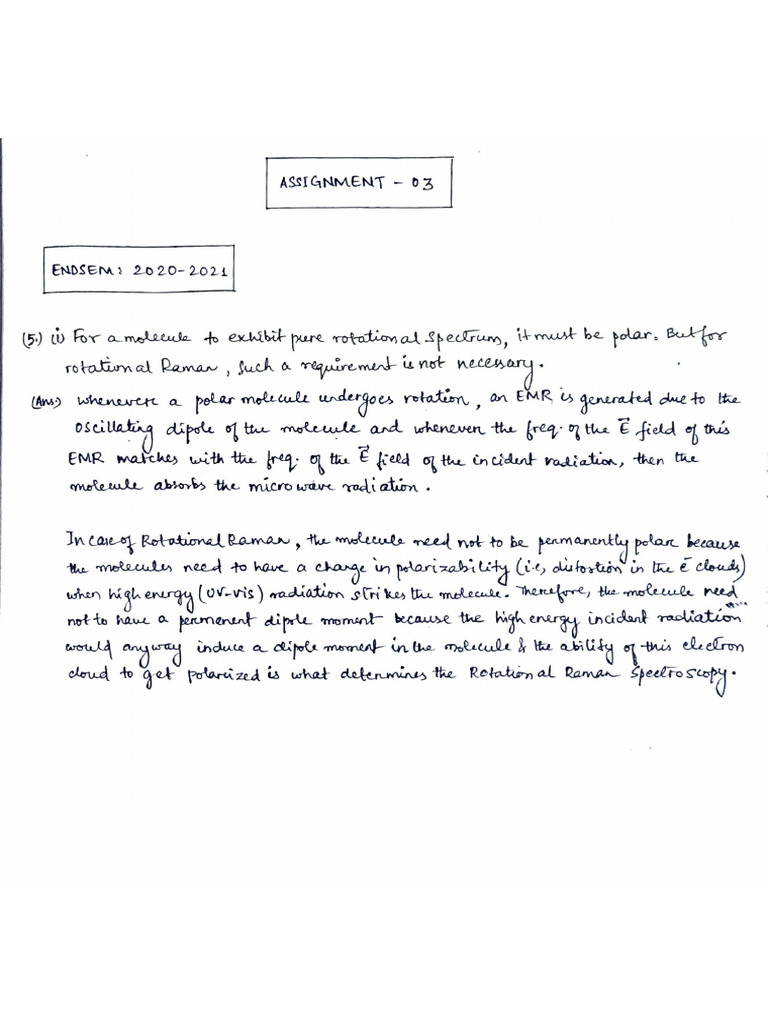 ASSIGNMENT - 03
ENDSEM: 2020-2021
(5.) (i) For a molecule to exhibit pure rotational spectrum, it must be polar. But for
rotational Raman, such a requirement is not necessary.
(Ans:) Whenever a polar molecule undergoes rotation, an EMR is generated due to the
oscillating dipole of the molecule and whenever the freq. of the E⃗ field of this
EMR matches with the freq. of the E⃗ field of the incident radiation, then the
molecule absorbs the microwave radiation.
In case of Rotational Raman, the molecule need not to be permanently polar because
the molecules need to have a change in polarizability (i.e, distortion in the ē clouds)
when high energy (UV-vis) radiation strikes the molecule. Therefore, the molecule need
not to have a permenent diplre moment because the high energy incident radiation
would anyway induce a dipole moment in the molecule & the ability of this electron
cloud to get polarized is what determines the Rotational Raman Spectroscopy.